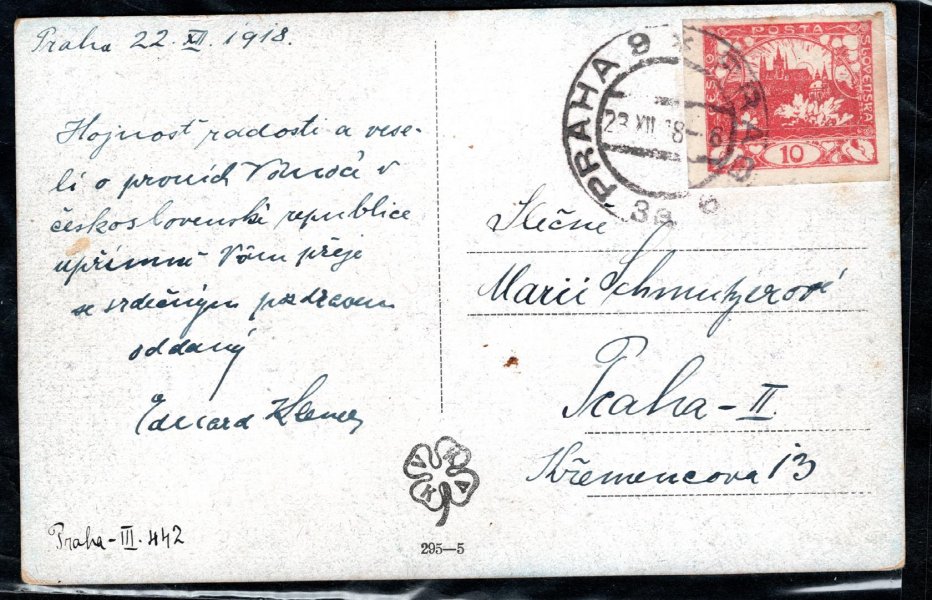 Praha 22. XII. 1918.
Hojnost radosti a vese-
lí o prvních Vánocích v
československé republice
upřímně Vám přeje
se srdečným pozdravem
oddaný
Eduard
Praha-III. 442
POSTA
ČESKO
SLOVENSKÁ
10
PRAHA 9 * PRAG 9
23 XII 18-6
3a
Slečně
Marii Schmutzerové
Praha-II.
Křemencova 13
VKKA
295—5